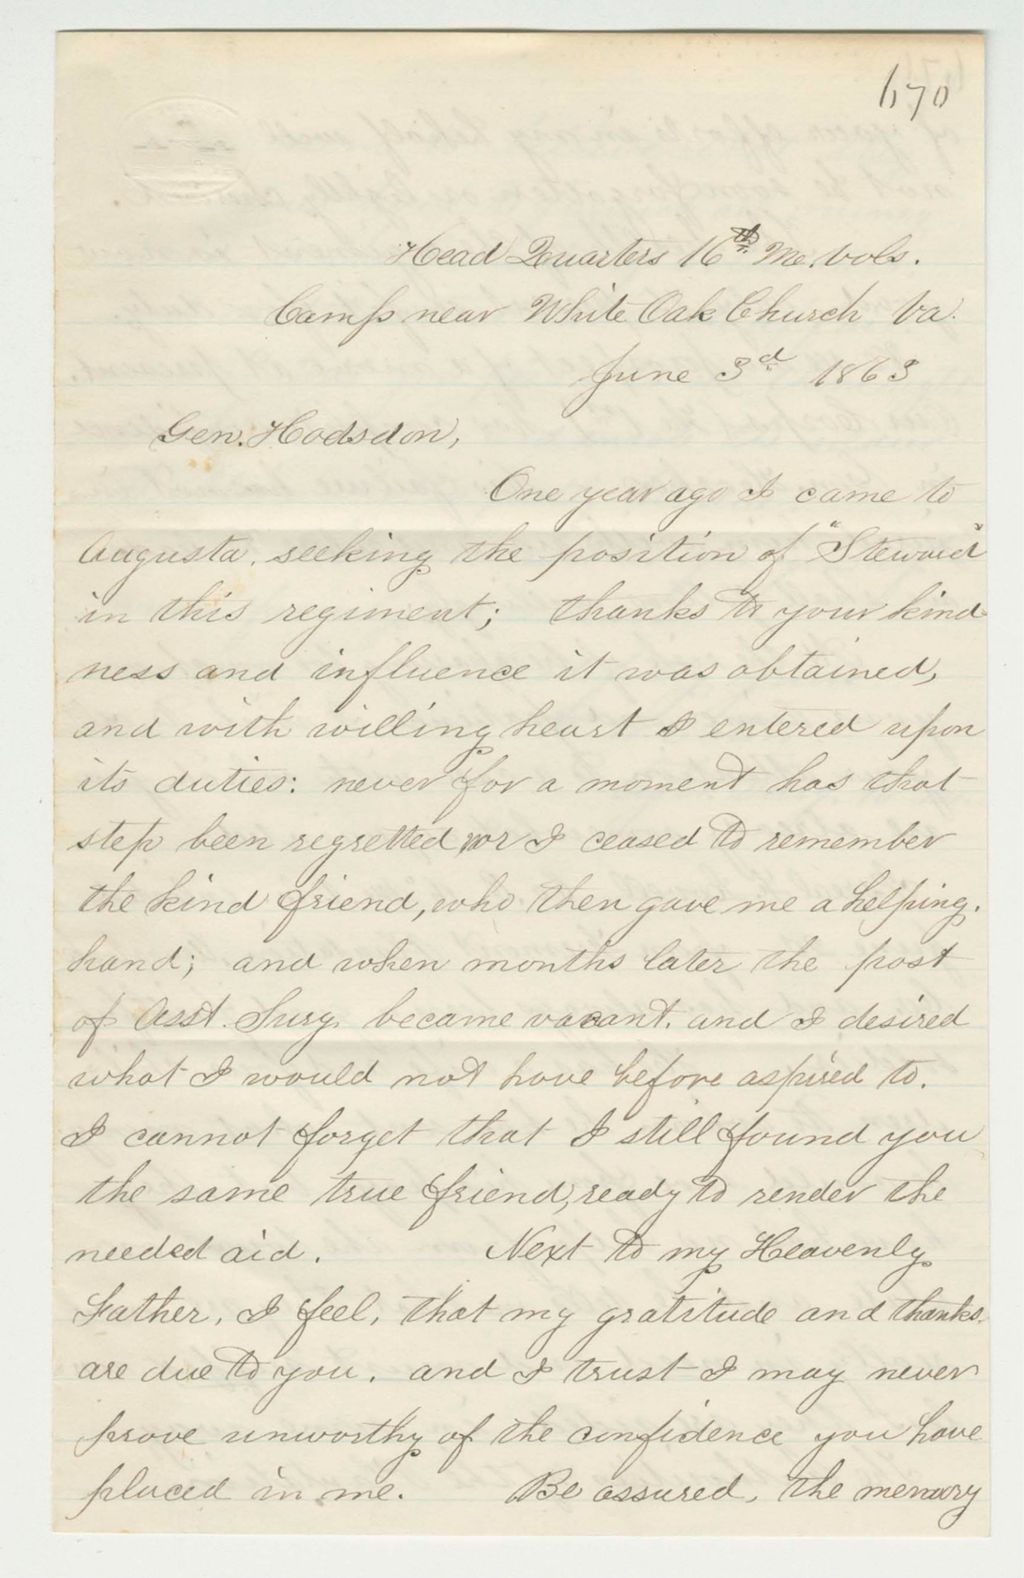 670
Head Quarters 16th Me. Vols.
Camp near White Oak Church Va.
June 3d 1863
Gen. Hodsdon,
One year ago I came to
Augusta, seeking the position of "Steward"
in this regiment; thanks to your kind-
ness and influence it was obtained,
and with willing heart I entered upon
its duties: never for a moment has that
step been regretted nor I ceased to remember
the kind friend, who then gave me a helping
hand; and when months later the post
of Asst. Surg. became vacant, and I desired
what I would not have before aspired to.
I cannot forget that I still found you
the same true friend, ready to render the
needed aid. Next to my Heavenly
Father, I feel, that my gratitude and thanks
are due to you. and I trust I may never
prove unworthy of the confidence you have
placed in me. Be assured, the memory